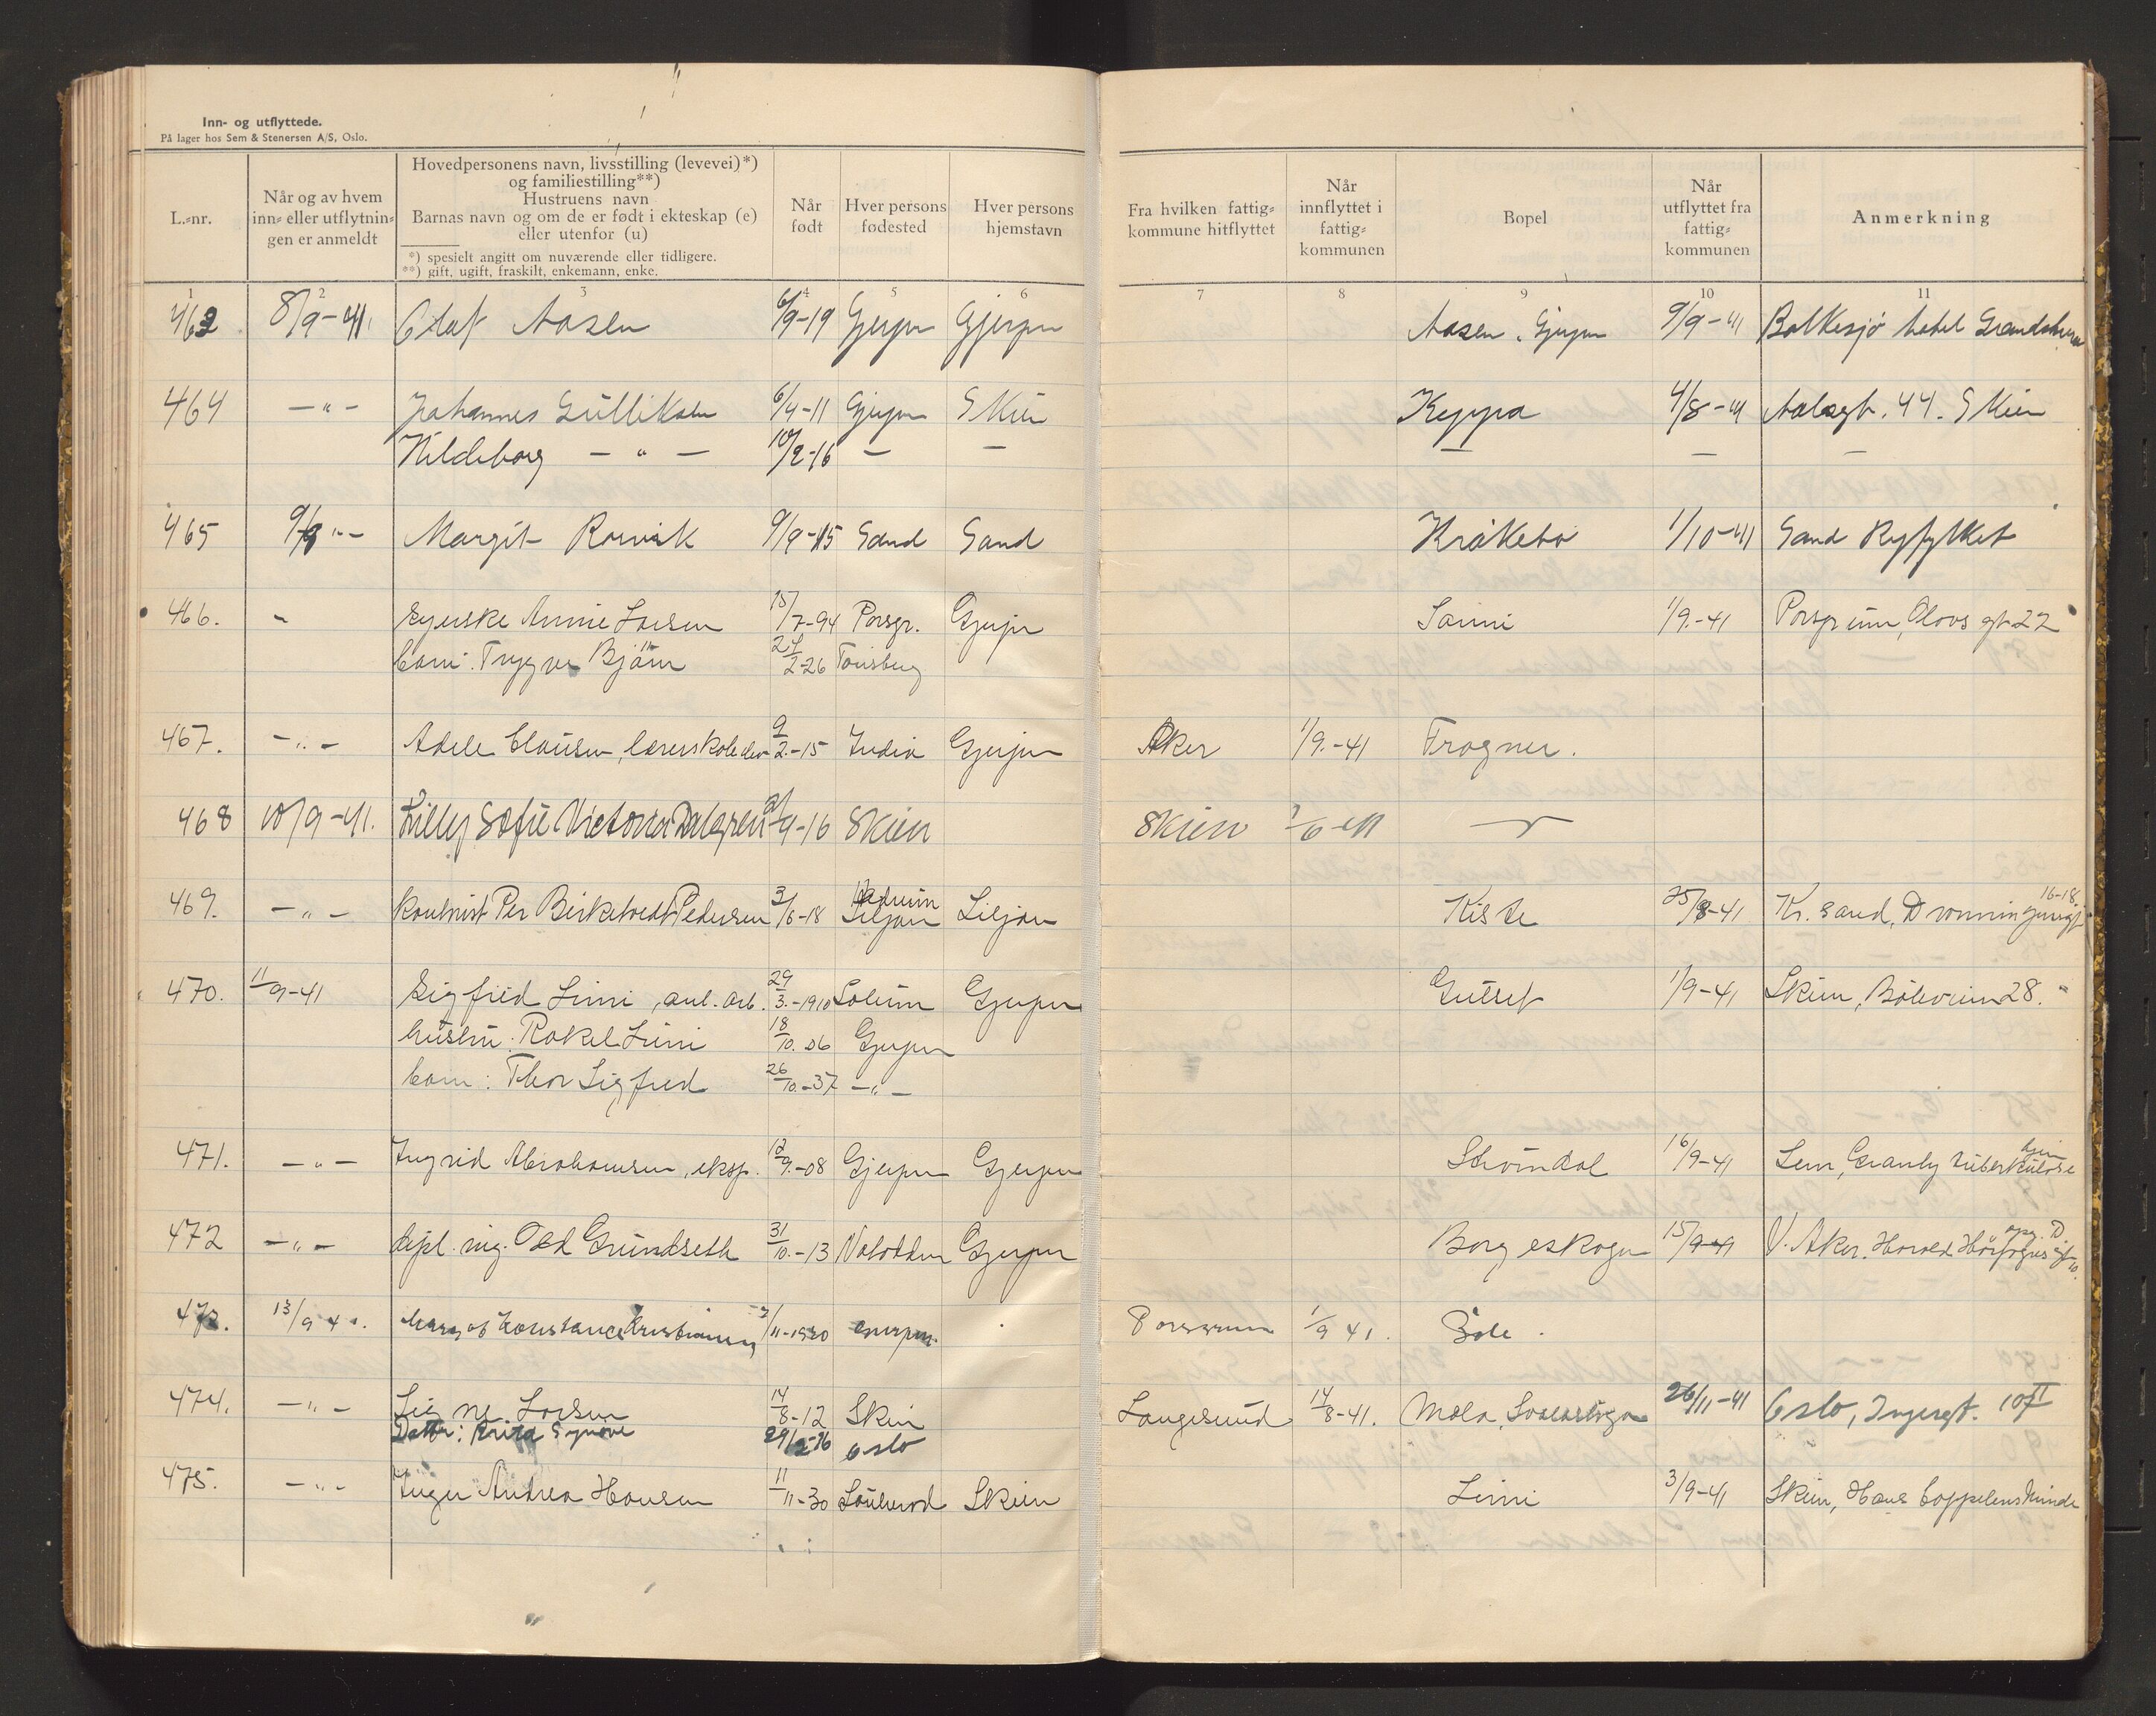 Inn- og utflyttede.
På lager hos Sem & Stenersen A/S, Oslo.
L.-nr.
Når og av hvem inn- eller utflytningen er anmeldt
Hovedpersonens navn, livsstilling (levevei)*)
og familiestilling**)
Hustruens navn
Barnas navn og om de er født i ekteskap (e)
eller utenfor (u)
*) spesielt angitt om nuværende eller tidligere.
**) gift, ugift, fraskilt, enkemann, enke.
Når født
Hver persons fødested
Hver persons hjemstavn
Fra hvilken fattigkommune hitflyttet
Når innflyttet i fattigkommunen
Bopel
Når utflyttet fra fattigkommunen
Anmerkning
1 2 3 4 5 6 7 8 9 10 11
463 8/9-41. Olaf Aasen 6/9-19 Gjerpen Gjerpen Aasen, Gjerpen 9/9-41 Bolkesjö hotel
464 -"- Johannes Gulliksen 6/4-11 Gjerpen Skien Keppa 4/8-41 44. Skien
Hildeborg -"- 10/2-16 - - - - -
465 9/9 "- Margit Rorvik 9/9-15 Sand Sand Kråkebo 1/10-41 Sand Ryfylket
466. - Annie Larsen 15/7-94 Porsgr. Gjerpen Sanni 1/9.-41 Porsgrunn, Olavs gt 22
barn: Trygve Björn 24/2-26 Tønsberg
467. -"- Adele Clausen, 9/2.-15 India Gjerpen Aker 1/9.-41 Frogner.
468 10/9-41. Lilly Sofie Victoria Dalgren 4-16 Skien Skien
469. -"- Per Birketvedt Pedersen 3/6-18 Siljan Siljan Kiste 25/8-41 Kr.sand, Dronningensgt 16-18
470. 11/9-41 Sigfred Linni, anl. arb. 29/3.-1910 Solum Gjerpen Gulset 1/9-41 Skien, 28.
hustru: Rakel Linni 18/10. 06 Gjerpen
barn: Thor Sigfred 26/10.-37 -"-
471. -"- Ingrid Abrahamsen, eksp. 12/9.-08 Gjerpen Gjerpen Strömdal 16/9-41 Sem, Granly tuberkulosehjem
472 -"- dipl. ing. Odd Grundseth 31/10.-13 Notodden Gjerpen Borgeskogen 15/9-41 V. Aker. Harald Hårfagresgt 10. opg. D.
473. 13/9 41. Konstance Kristiansen 11-1920 Gjerpen. Porsgrunn 1/9 41. Böle.
474. -"- Signe Larsen 14/8-12 Skien Langesund 14/8-41. Mæla, 26/11-41 Oslo, 10 II
Datter: Synöve Oslo
475. -"- Inger Andrea Hansen 11/11-30 Skien Linni 3/9-41 Skien, Hans Coppelens Minde